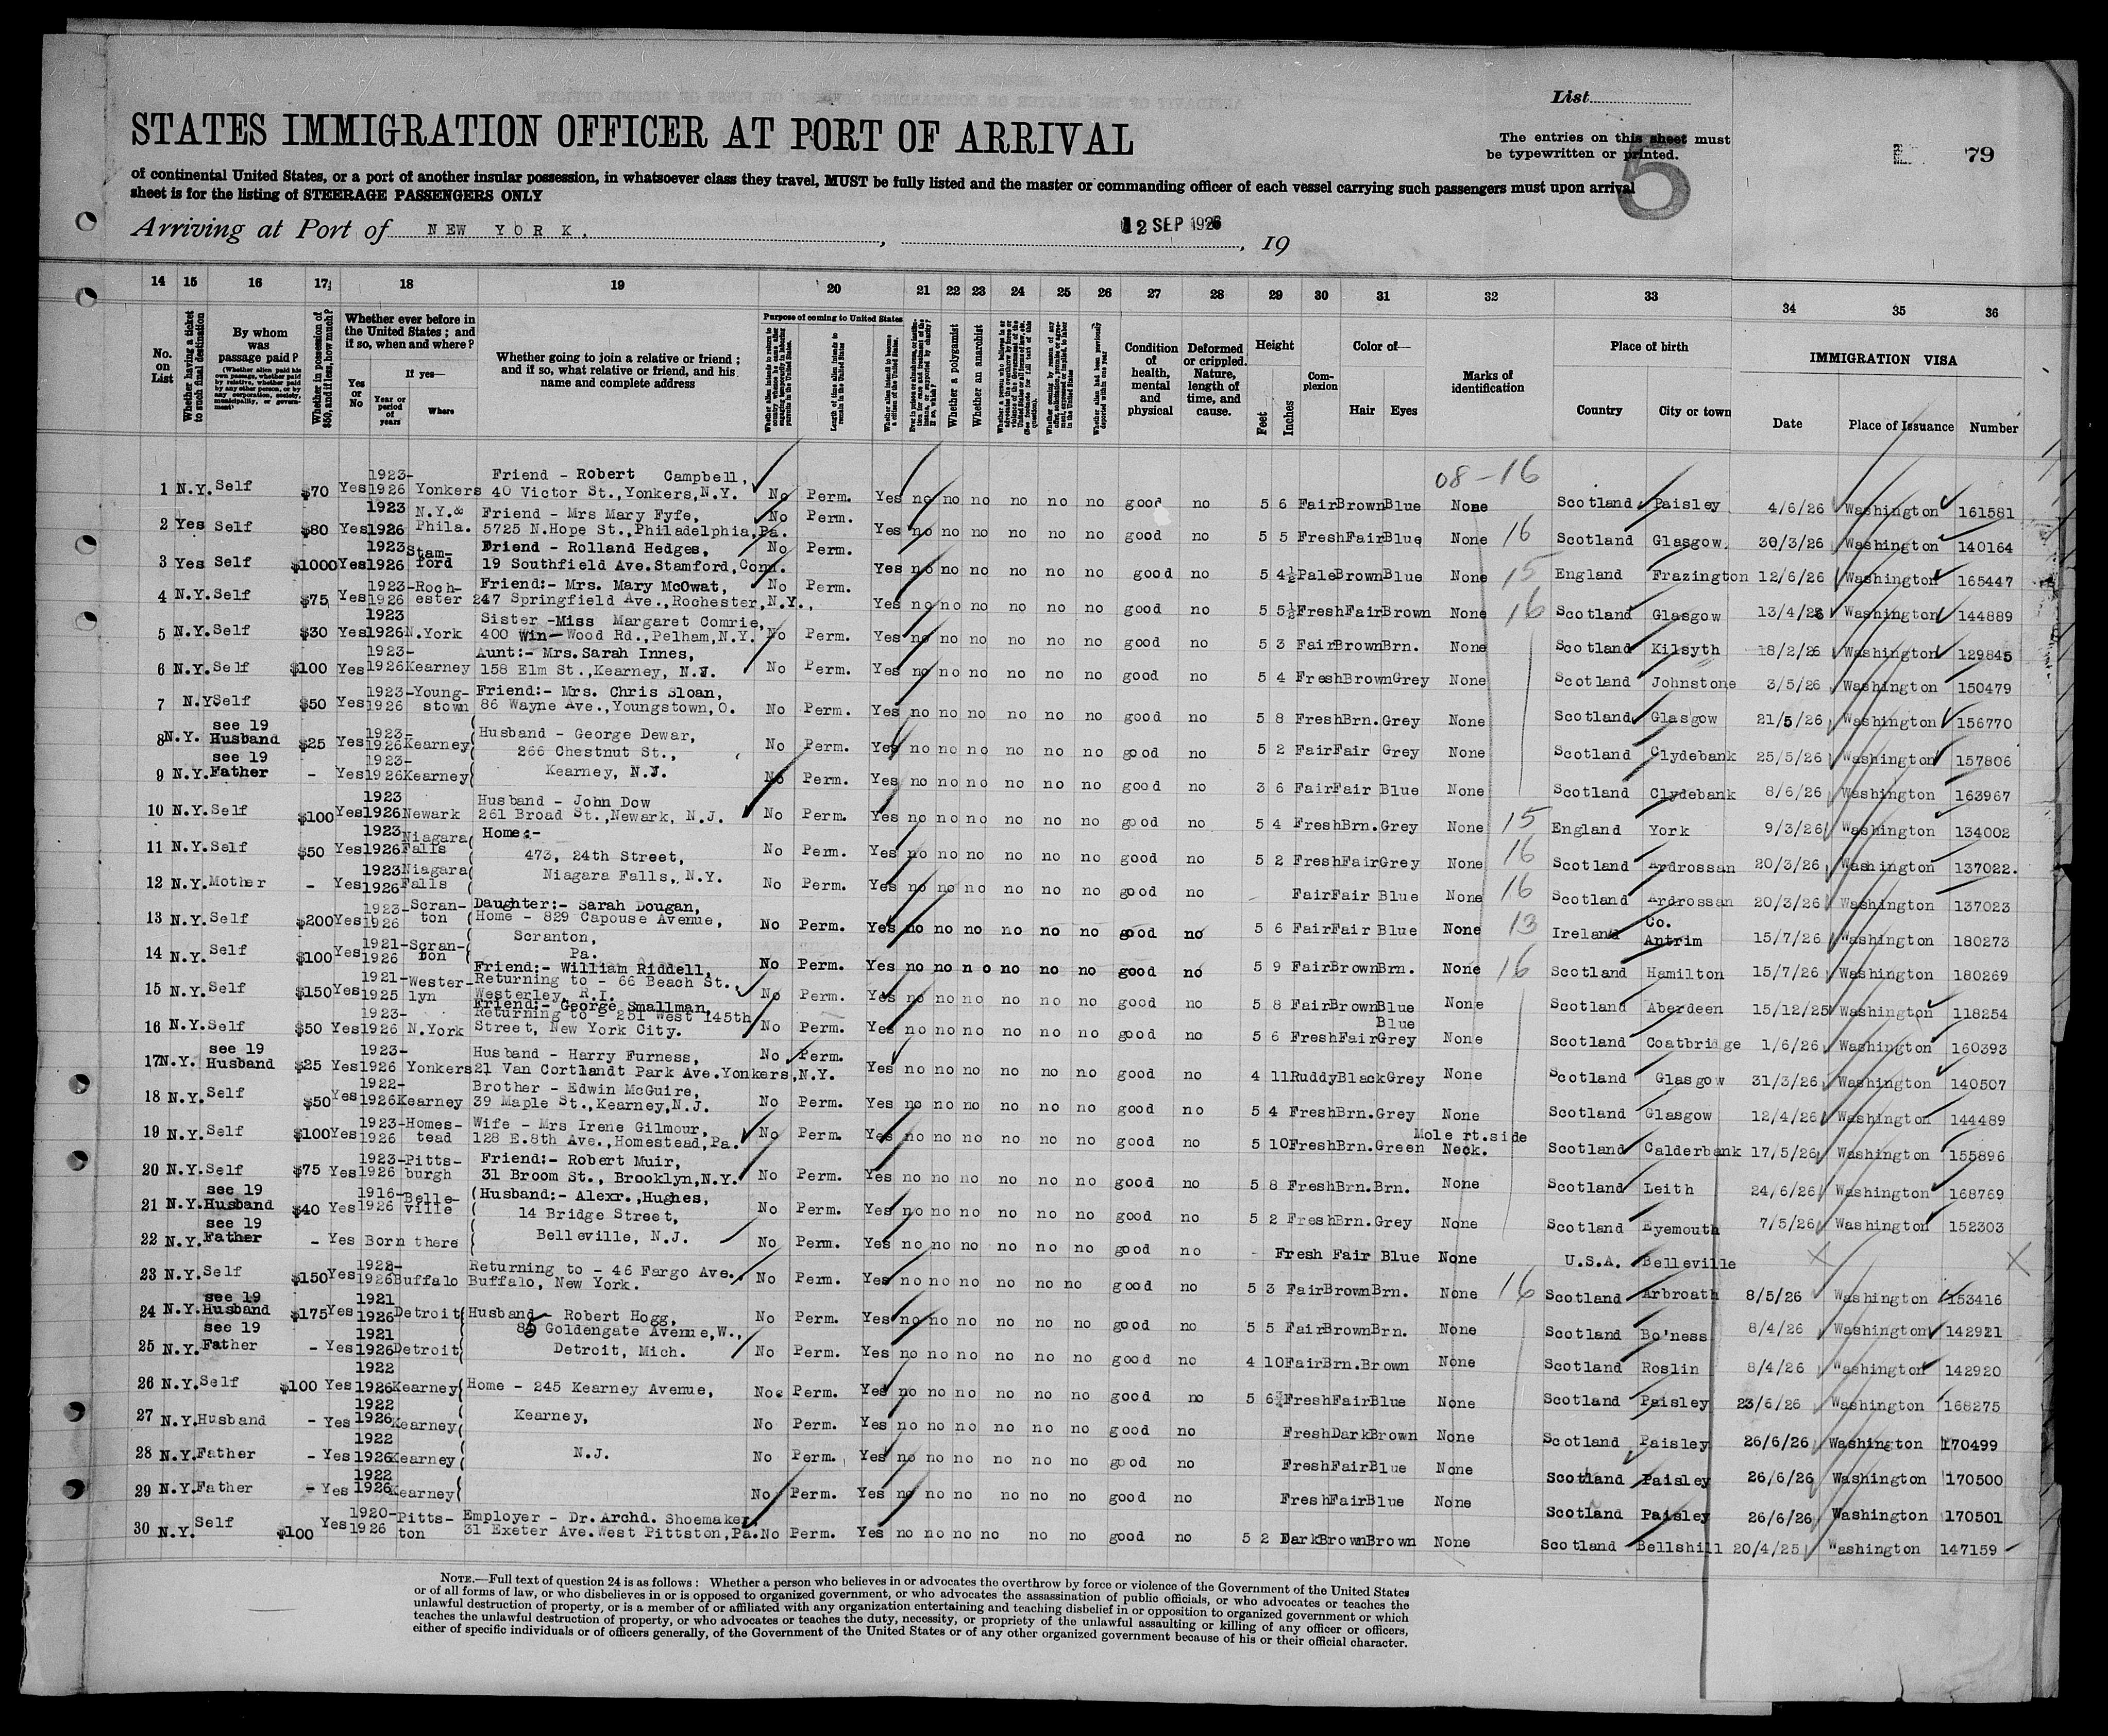 List
STATES IMMIGRATION OFFICER AT PORT OF ARRIVAL
The entries on this sheet must
be typewritten or printed.
5
79
of continental United States, or a port of another insular possession, in whatsoever class they travel, MUST be fully listed and the master or commanding officer of each vessel carrying such passengers must upon arrival
sheet is for the listing of STEERAGE PASSENGERS ONLY
Arriving at Port of NEW YORK. , 12 SEP 1926, 19
14 15 16 17 18 19 20 21 22 23 24 25 26 27 28 29 30 31 32 33 34 35 36
No. on List
Whether having a ticket to such final destination
By whom was passage paid?
(Whether alien paid his own passage, whether paid by relative, whether paid by any other person, or by any corporation, society, municipality, or government)
Whether in possession of $50, and if less, how much?
Whether ever before in the United States; and if so, when and where?
Yes or No
If yes—
Year or period of years
Where
Whether going to join a relative or friend; and if so, what relative or friend, and his name and complete address
Purpose of coming to United States
Length of time alien intends to remain in the United States
Whether alien intends to become a citizen of the United States
Whether a polygamist
Whether an anarchist
Condition of health, mental and physical
Deformed or crippled. Nature, length of time, and cause.
Height
Feet
Inches
Complexion
Color of—
Hair
Eyes
Marks of identification
Place of birth
Country
City or town
IMMIGRATION VISA
Date
Place of Issuance
Number
08-16
1 N.Y. Self $70 Yes 1923-1926 Yonkers Friend - Robert Campbell, 40 Victor St., Yonkers, N.Y. No Perm. Yes no no no no no no good no 5 6 Fair Brown Blue None Scotland Paisley 4/6/26 Washington 161581
2 Yes Self $80 Yes 1923 1926 N.Y.& Phila. Friend - Mrs Mary Fyfe, 5725 N.Hope St., Philadelphia, Pa. No Perm. Yes no no no no no no good no 5 5 Fresh Fair Blue None 16 Scotland Glasgow. 30/3/26 Washington 140164
3 Yes Self $1000 Yes 1923 1926 Stamford Friend - Rolland Hedges, 19 Southfield Ave. Stamford, Conn. No Perm. Yes no no no no no no good no 5 4½ Pale Brown Blue None 15 England Frazington 12/6/26 Washington 165447
4 N.Y. Self $75 Yes 1923-1926 Rochester Friend:- Mrs. Mary McOwat, 247 Springfield Ave., Rochester, N.Y., No Perm. Yes no no no no no no good no 5 5½ Fresh Fair Brown None 16 Scotland Glasgow 13/4/26 Washington 144889
5 N.Y. Self $30 Yes 1923 1926 N.York Sister -Miss Margaret Comrie, 400 Win-Wood Rd., Pelham, N.Y. No Perm. Yes no no no no no no good no 5 3 Fair Brown Brn. None Scotland Kilsyth 18/2/26 Washington 129845
6 N.Y. Self $100 Yes 1923-1926 Kearney Aunt:- Mrs. Sarah Innes, 158 Elm St., Kearney, N.J. No Perm. Yes no no no no no no good no 5 4 Fresh Brown Grey None Scotland Johnstone 3/5/26 Washington 150479
7 N.Y Self $50 Yes 1923-1926 Youngstown Friend:- Mrs. Chris Sloan, 86 Wayne Ave., Youngstown, O. No Perm. Yes no no no no no no good no 5 8 Fresh Brn. Grey None Scotland Glasgow 21/5/26 Washington 156770
8 N.Y. see 19 Husband $25 Yes 1923-1926 Kearney Husband - George Dewar, 266 Chestnut St., No Perm. Yes no no no no no no good no 5 2 Fair Fair Grey None Scotland Clydebank 25/5/26 Washington 157806
9 N.Y. see 19 Father - Yes 1923-1926 Kearney Kearney, N.J. No Perm. Yes no no no no no no good no 3 6 Fair Fair Blue None Scotland Clydebank 8/6/26 Washington 163967
10 N.Y. Self $100 Yes 1923 1926 Newark Husband - John Dow 261 Broad St., Newark, N.J. No Perm. Yes no no no no no no good no 5 4 Fresh Brn. Grey None 15 England York 9/3/26 Washington 134002
11 N.Y. Self $50 Yes 1923 1926 Niagara Falls Home:- 473, 24th Street, No Perm. Yes no no no no no no good no 5 2 Fresh Fair Grey None 16 Scotland Ardrossan 20/3/26 Washington 137022.
12 N.Y. Mother - Yes 1923 1926 Niagara Falls Niagara Falls, N.Y. No Perm. Yes no no no no no no good no - Fair Fair Blue None 16 Scotland Ardrossan 20/3/26 Washington 137023
13 N.Y. Self $200 Yes 1923-1926 Scranton Daughter:- Sarah Dougan, Home - 829 Capouse Avenue, No Perm. Yes no no no no no no good no 5 6 Fair Fair Blue None 13 Ireland Co. Antrim 15/7/26 Washington 180273
14 N.Y. Self $100 Yes 1921-1926 Scranton Scranton, Pa. No Perm. Yes no no no no no no good no 5 9 Fair Brown Brn. None 16 Scotland Hamilton 15/7/26 Washington 180269
15 N.Y. Self $150 Yes 1921-1925 Westerlyn Friend:- William Riddell, Returning to - 66 Beach St., Westerley, R.I. No Perm. Yes no no no no no no good no 5 8 Fair Brown Blue None Scotland Aberdeen 15/12/25 Washington 118254
16 N.Y. Self $50 Yes 1923-1926 N.York Friend:- George Smallman, Returning to - 251 West 145th Street, New York City. No Perm. Yes no no no no no no good no 5 6 Fresh Fair Blue Grey None Scotland Coatbridge 1/6/26 Washington 160393
17 N.Y. see 19 Husband $25 Yes 1923-1926 Yonkers Husband - Harry Furness, 21 Van Cortlandt Park Ave. Yonkers, N.Y. No Perm. Yes no no no no no no good no 4 11 Ruddy Black Grey None Scotland Glasgow 31/3/26 Washington 140507
18 N.Y. Self $50 Yes 1922-1926 Kearney Brother - Edwin McGuire, 39 Maple St., Kearney, N.J. No Perm. Yes no no no no no no good no 5 4 Fresh Brn. Grey None Scotland Glasgow 12/4/26 Washington 144489
19 N.Y. Self $100 Yes 1923-1926 Homestead Wife - Mrs Irene Gilmour, 128 E.8th Ave., Homestead, Pa. No Perm. Yes no no no no no no good no 5 10 Fresh Brn. Green Mole rt.side Neck. Scotland Calderbank 17/5/26 Washington 155896
20 N.Y. Self $75 Yes 1923-1926 Pittsburgh Friend:- Robert Muir, 31 Broom St., Brooklyn, N.Y. No Perm. Yes no no no no no no good no 5 8 Fresh Brn. Brn. None Scotland Leith 24/6/26 Washington 168769
21 N.Y. see 19 Husband $40 Yes 1916-1926 Belleville Husband:- Alexr., Hughes, 14 Bridge Street, No Perm. Yes no no no no no no good no 5 2 Fresh Brn. Grey None Scotland Eyemouth 7/5/26 Washington 152303
22 N.Y. see 19 Father - Yes Born there Belleville, N.J. No Perm. Yes no no no no no no good no - Fresh Fair Blue None U.S.A. Belleville X X
23 N.Y. Self $150 Yes 1922-1926 Buffalo Returning to - 46 Fargo Ave., Buffalo, New York. No Perm. Yes no no no no no no good no 5 3 Fair Brown Brn. None 16 Scotland Arbroath 8/5/26 Washington 153416
24 N.Y. see 19 Husband $175 Yes 1921 1926 Detroit Husband - Robert Hogg, Goldengate Avenue, W., No Perm. Yes no no no no no no good no 5 5 Fair Brown Brn. None Scotland Bo'ness 8/4/26 Washington 142921
25 N.Y. see 19 Father - Yes 1921 1926 Detroit Detroit, Mich. No Perm. Yes no no no no no no good no 4 10 Fair Brn. Brown None Scotland Roslin 8/4/26 Washington 142920
26 N.Y. Self $100 Yes 1922 1926 Kearney Home - 245 Kearney Avenue, No. Perm. Yes no no no no no no good no 5 6¾ Fresh Fair Blue None Scotland Paisley 23/6/26 Washington 168275
27 N.Y. Husband - Yes 1922 1926 Kearney Kearney, No Perm. Yes no no no no no no good no Fresh Dark Brown None Scotland Paisley 26/6/26 Washington 170499
28 N.Y. Father - Yes 1922 1926 Kearney N.J. No Perm. Yes no no no no no no good no Fresh Fair Blue None Scotland Paisley 26/6/26 Washington 170500
29 N.Y. Father - Yes 1922 1926 Kearney No Perm. Yes no no no no no no good no Fresh Fair Blue None Scotland Paisley 26/6/26 Washington 170501
30 N.Y. Self $100 Yes 1920-1926 Pittston Employer - Dr. Archd. Shoemaker, 31 Exeter Ave. West Pittston, Pa. No Perm. Yes no no no no no no good no 5 2 Dark Brown Brown None Scotland Bellshill 20/4/25 Washington 147159
NOTE.—Full text of question 24 is as follows: Whether a person who believes in or advocates the overthrow by force or violence of the Government of the United States
or of all forms of law, or who disbelieves in or is opposed to organized government, or who advocates the assassination of public officials, or who advocates or teaches the
unlawful destruction of property, or is a member of or affiliated with any organization entertaining and teaching disbelief in or opposition to organized government or which
teaches the unlawful destruction of property, or who advocates or teaches the duty, necessity, or propriety of the unlawful assaulting or killing of any officer or officers,
either of specific individuals or of officers generally, of the Government of the United States or of any other organized government because of his or their official character.